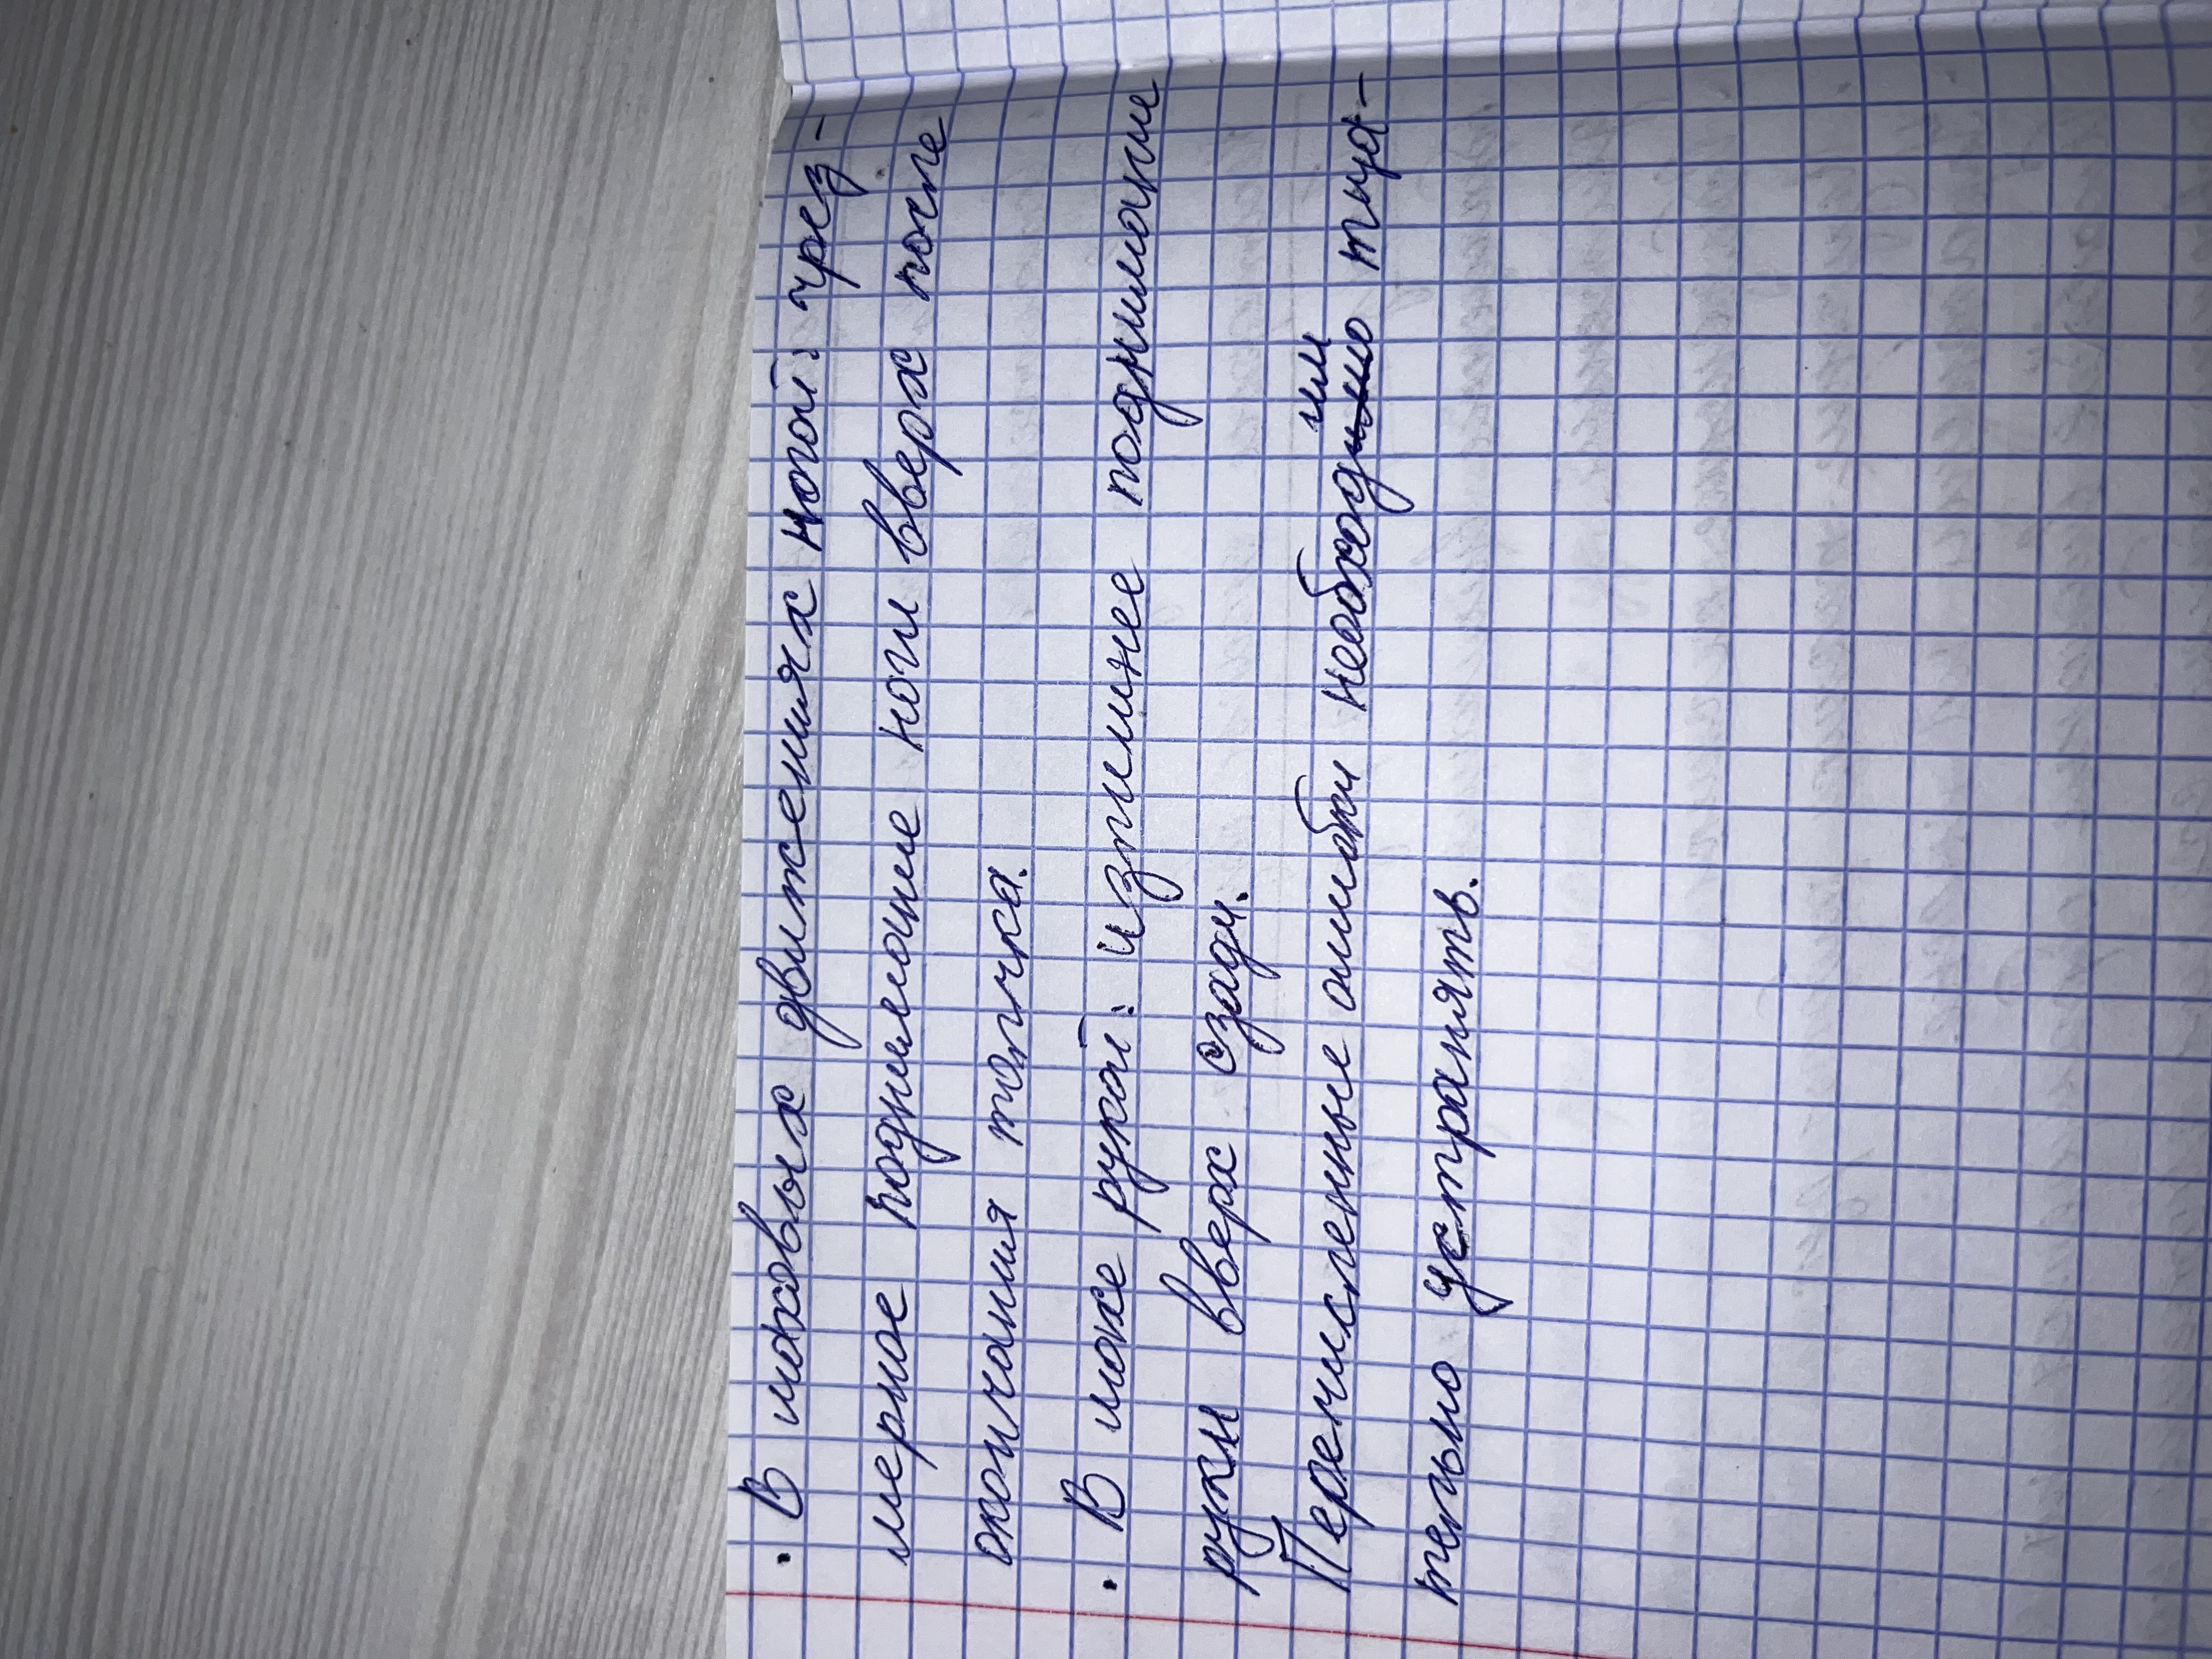 · В маховых движениях ногой: чрез-
мерное поднимание ноги вверх после
окончания толчка.
· В махе рукой: излишнее поднимание
руки вверх сзади.
Перечисленные ошибки необходимо тща-
тельно устранять.